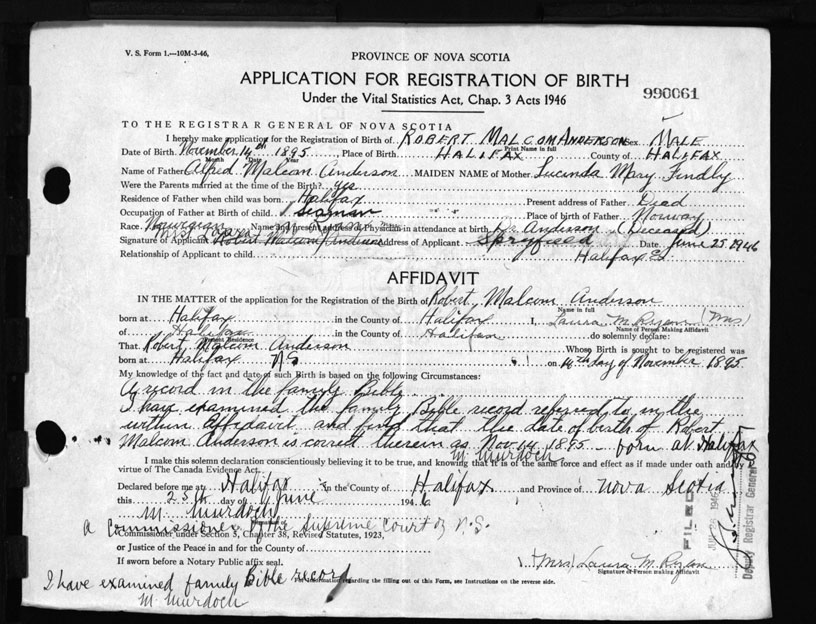 V. S. Form 1.—10M-3-46.
PROVINCE OF NOVA SCOTIA
APPLICATION FOR REGISTRATION OF BIRTH
990061
Under the Vital Statistics Act, Chap. 3 Acts 1946
TO THE REGISTRAR GENERAL OF NOVA SCOTIA
I hereby make application for the Registration of Birth of ROBERT MALCOM ANDERSON Sex MALE
Print Name in full
Date of Birth November 14th 1895 Place of Birth HALIFAX County of HALIFAX
Month Date Year
Name of Father Alfred Malcom Anderson MAIDEN NAME of Mother Lucinda Mary Findly
Were the Parents married at the time of the Birth? yes
Residence of Father when child was born Halifax Present address of Father Dead
Occupation of Father at Birth of child Seaman Place of Birth of Father Norway
Race Norwegian Name and present address of Physician in attendance at birth Dr Anderson (Deceased)
Mrs Laura M
Signature of Applicant Robert Malcom Anderson Address of Applicant Spryfield Date June 25 1946
Relationship of Applicant to child Halifax Co
AFFIDAVIT
IN THE MATTER of the application for the Registration of the Birth of Robert Malcom Anderson
Name in full
born at Halifax in the County of Halifax I, Laura M (Mrs)
Name of Person Making Affidavit
of Halifax in the County of Halifax do solemnly declare:
Present Residence
That Robert Malcom Anderson Whose Birth is sought to be registered was
born at Halifax NS on 14th day of November 1895
My knowledge of the fact and date of such Birth is based on the following Circumstances:
A record in the family Bible
I have examined the family Bible record referred to in the
within Affidavit and find that the date of birth of Robert
Malcom Anderson is correct therein as Nov 14 1895 - born at Halifax
M Murdoch
I make this solemn declaration conscientiously believing it to be true, and knowing that it is of the same force and effect as if made under oath and by
virtue of The Canada Evidence Act.
Declared before me at Halifax in the County of Halifax and Province of Nova Scotia
this 25th day of June 1946
M Murdoch
a Commissioner of the Supreme Court of N.S.
Commissioner under Section 5, Chapter 38, Revised Statutes, 1923,
or Justice of the Peace in and for the County of
If sworn before a Notary Public affix seal.
(Mrs) Laura M
Signature of Person making Affidavit
For information regarding the filling out of this Form, see Instructions on the reverse side.
I have examined family Bible record
M Murdoch
FILED
1946
Deputy Registrar General